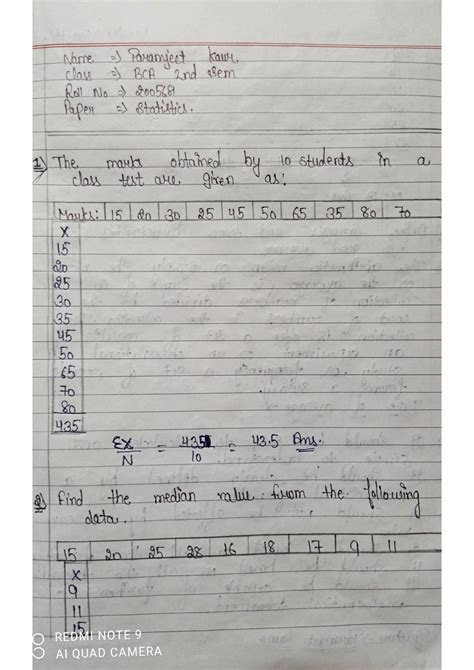 Name => Paramjeet Kaur.
Class => BCA 2nd Sem
Roll No => 200568
Paper => Statistics.
1) The marks obtained by 10 students in a
class test are given as:
Marks: 15 20 30 25 45 50 65 35 80 70
X
15
20
25
30
35
45
50
65
70
80
435
ΣX/N = 435/10 = 43.5 Ans.
2) Find the median value from the following
data.
15 20 25 28 16 18 17 9 11
X
9
11
15
REDMI NOTE 9
AI QUAD CAMERA